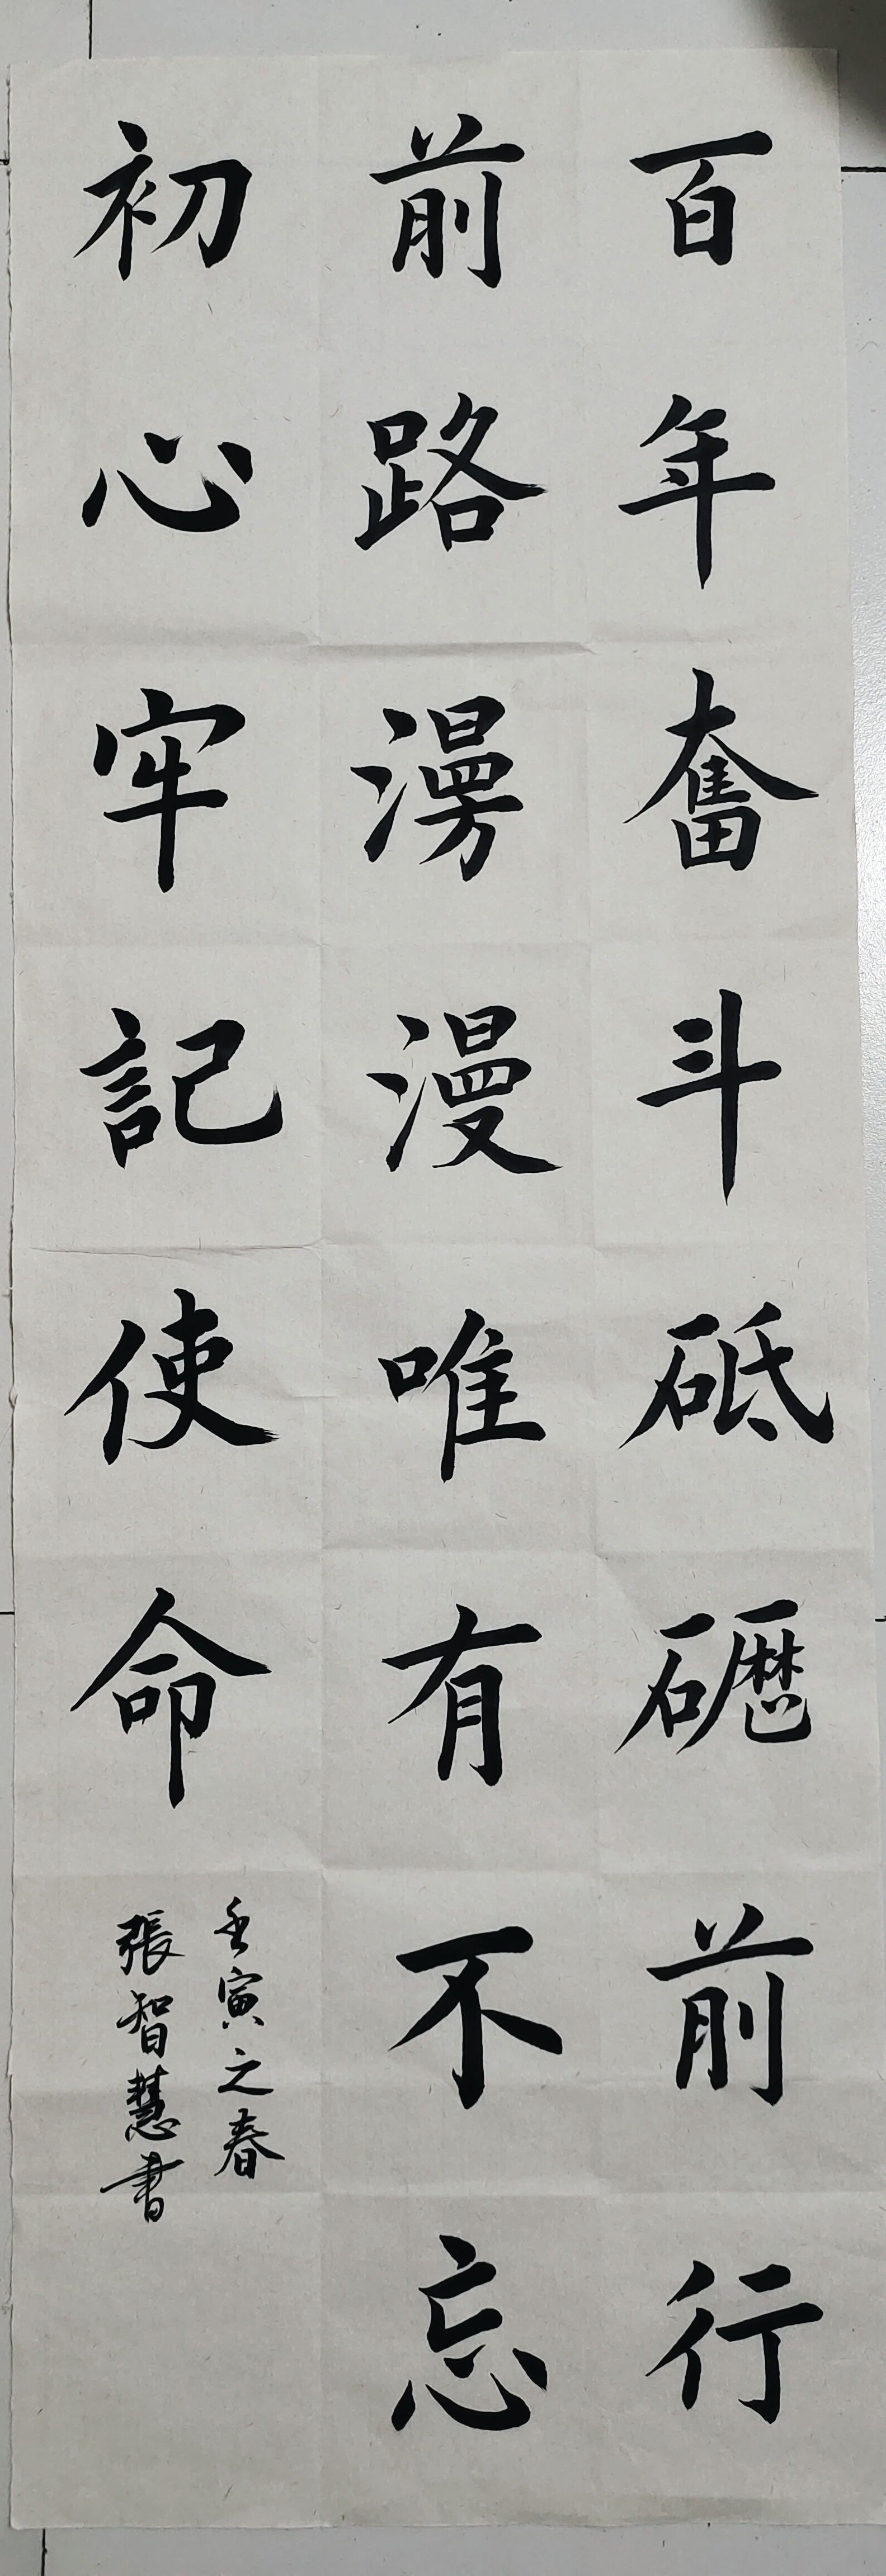 百年奮斗砥礰前行
前路澷漫唯有不忘
初心牢記使命
壬寅之春
張智慧書